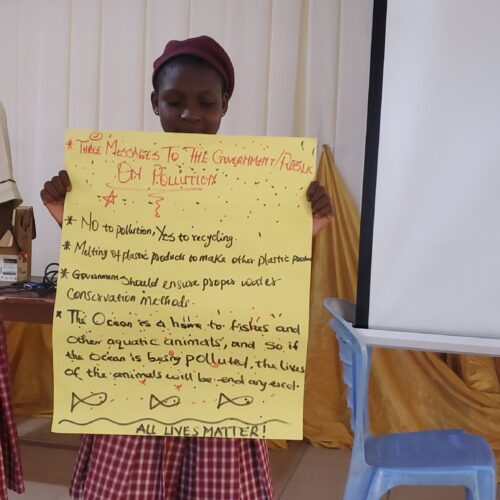 * THREE MESSAGES TO THE GOVERNMENT/PUBLIC
ON POLLUTION
* NO to pollution, YES to recycling.
* Melting of plastic products to make other plastic products
* Government should ensure proper water
Conservation methods.
* The Ocean is a home to fishes and
other aquatic animals, and so if
the ocean is being polluted, the lives
of the animals will be
ALL LIVES MATTER!